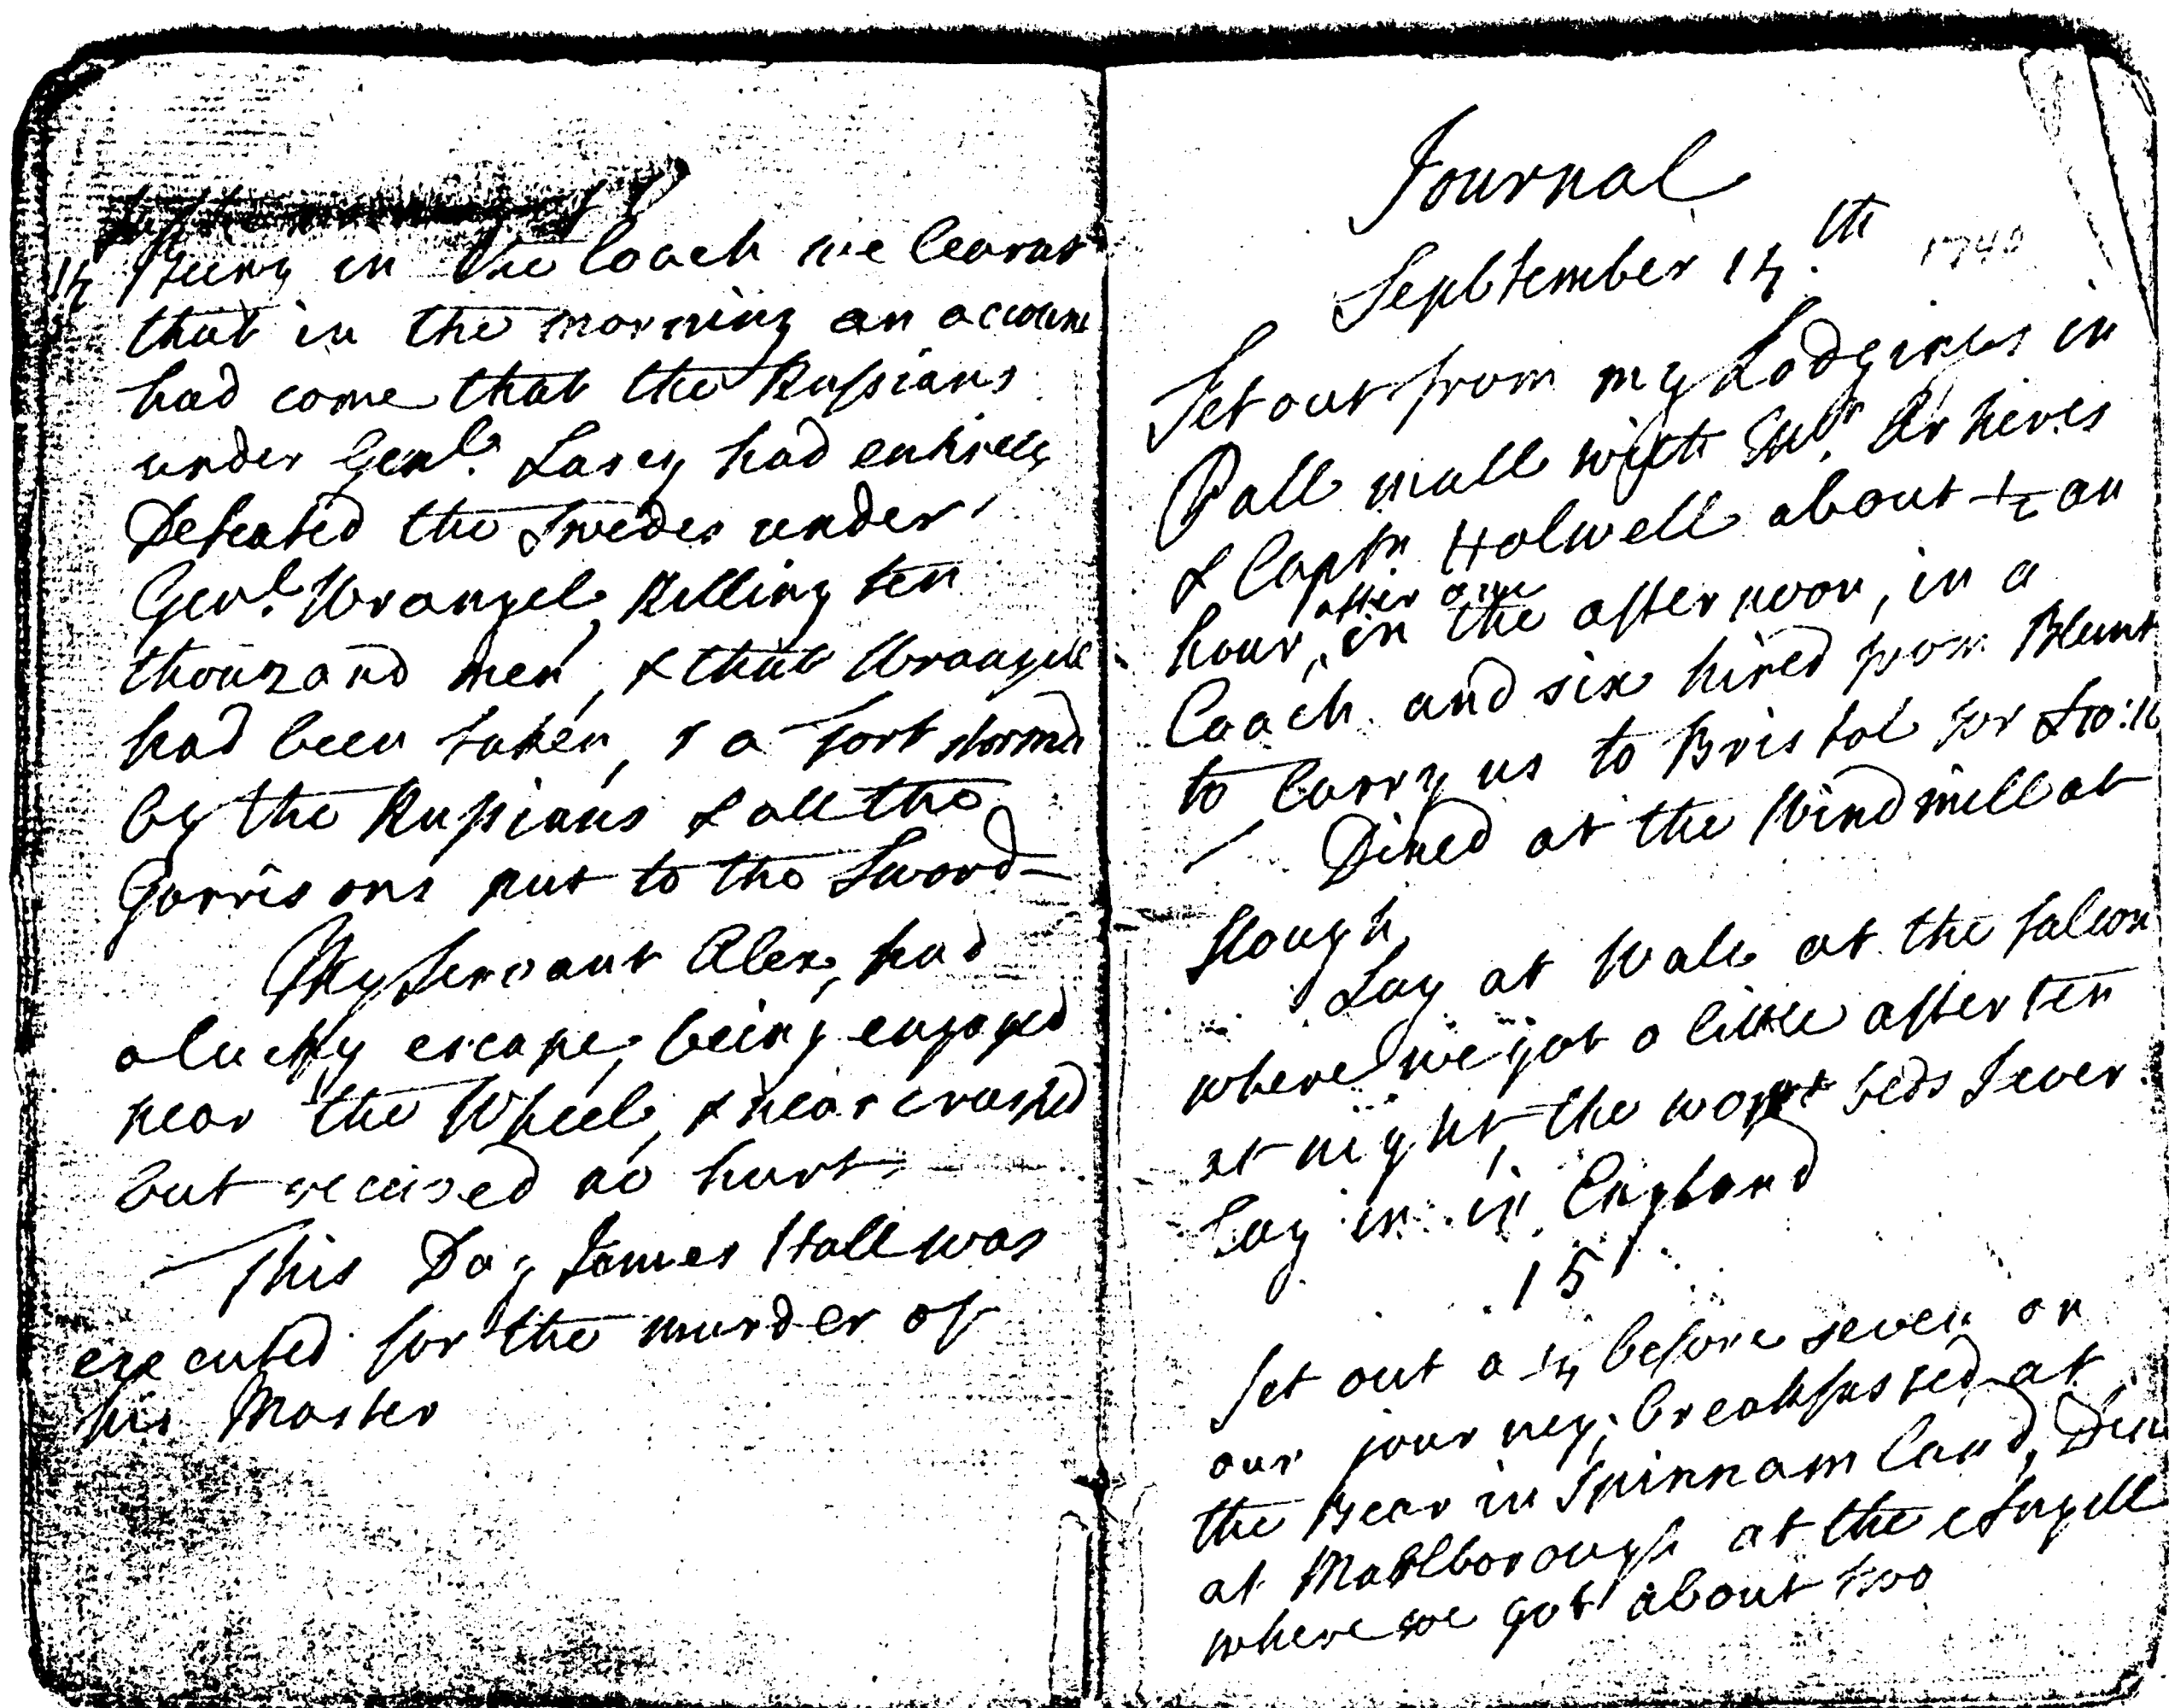 14 Being in the Coach we learnt
that in the morning an account
had come that the Russians
under Genl. Lascy had entirely
Defeated the Swedes under
Genl. Wrangel, Killing ten
thouzand men, & that Wrangell
had been taken, & a Fort stormd
by the Russians & all the
Garrisons put to the Sword—
My Servant Alex, had
a lucky escape, being engaged
near the Wheel, & near crushed
but received no hurt
This Day James Hall was
executed for the murder of
his Master
Journal
September 14th 174
Set out from my Lodgings in
Pall mall with Mr.
& Captn Holwell about ½ an
after one
hour, in the afternoon, in a
Coach and six hired from Blunt
to Carry us to Bristol for £10:
— Dined at the Windmill at
Slough,
Lay at Wale at the falcon
where we got a little after ten
at night, the worst beds I ever
Lay in in England
15
Set out a ¼ before seven on
our journey; breakfasted at
the Bear in Spinnamland, Din
at Marlborough at the Angell
where we got about two